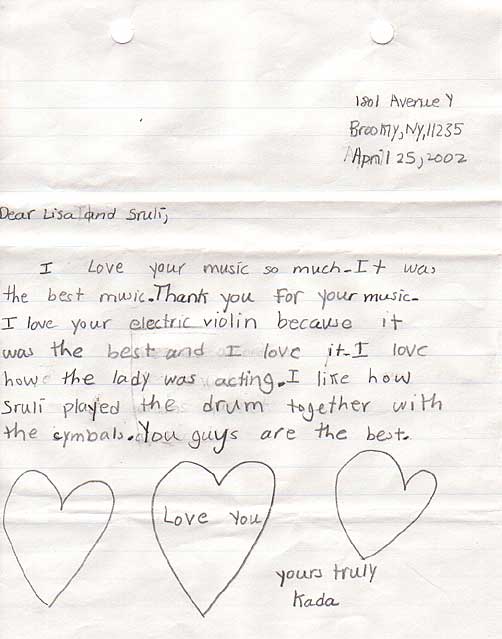 1801 Avenue Y
Brooky, Ny, 11235
April 25, 2002
Dear Lisa and Sruli,
I Love your music so much. It was
the best music. Thank you For your music.
I love your electric violin because it
was the best and I love it. I love
how the lady was acting. I like how
Sruli played the drum together with
the symbals. You guys are the best.
Love You
yours truly
Kada